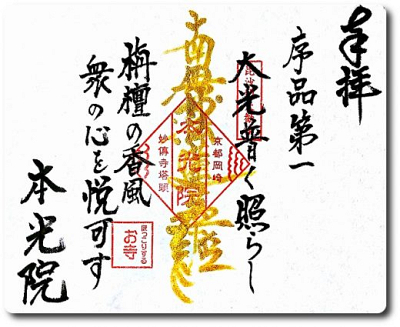 奉拝
序品第一
大光普く照らし
南無法蓮華経
栴檀の香風
衆の心を悦可す
本光院
京都岡崎
本光院
妙傳寺塔頭
ほっこりする
お寺